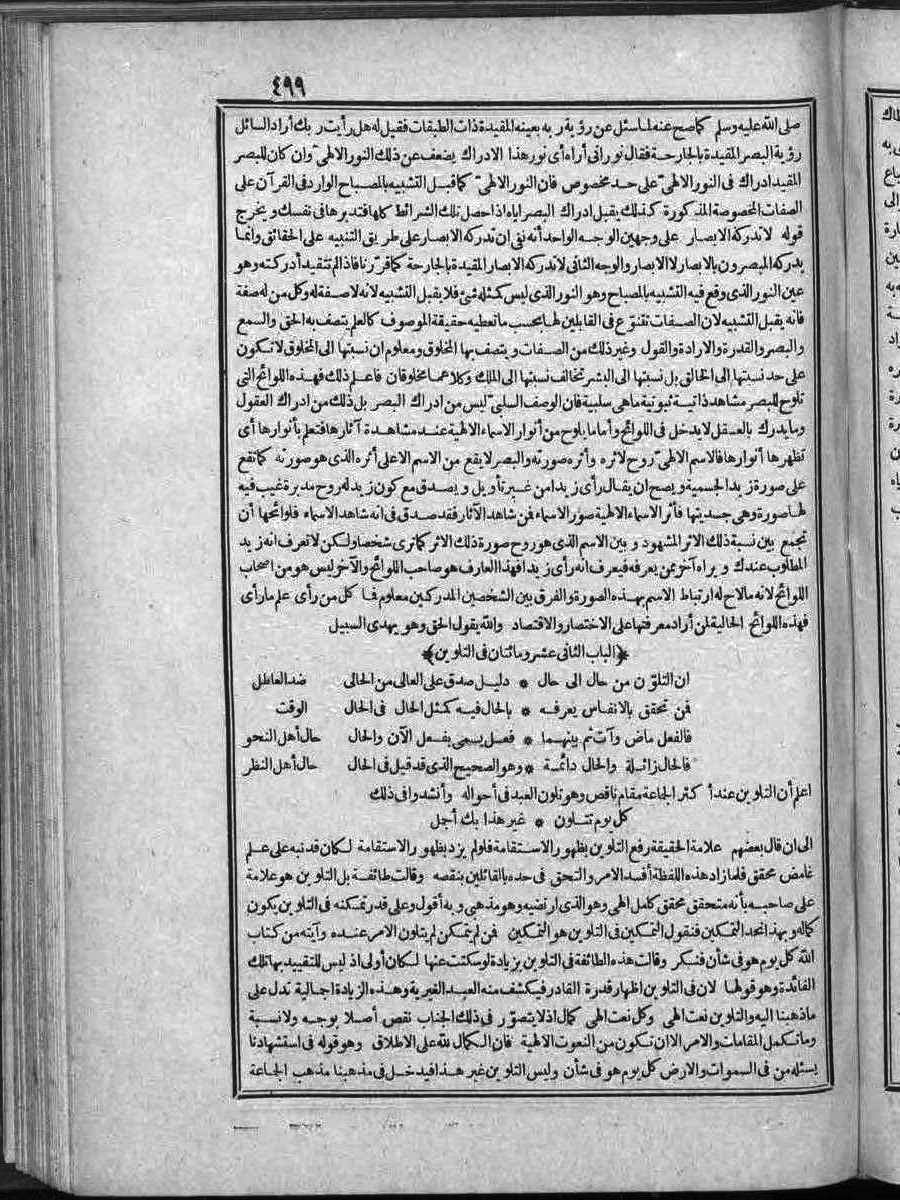 ٤٩٩
صلى الله عليه وسلم كما صح عنه لما سئل عن رؤية ربه بعينه المقيدة ذات الطبقات فقيل له هل رأيت ربك أراد السائل
رؤية البصر المقيدة بالجارحة فقال نوراني أراه أي نور هذا الادراك يضعف عن ذلك النور الالهي وان كان للبصر
المقيد ادراك في النور الالهي على حد مخصوص فان النور الالهي كما قبل التشبيه بالمصباح الوارد في القرآن على
الصفات المخصوصة المذكورة كذلك يقبل ادراك البصر اياه اذا حصل تلك الشرائط كلها فتدبرها في نفسك ويخرج
قوله لا تدركه الابصار على وجهين الوجه الواحد أنه نفى ان تدركه الابصار على طريق التنبيه على الحقائق وانما
يدركه المبصرون بالابصار لا الابصار والوجه الثاني لا تدركه الابصار المقيدة بالجارحة كما قررنا فاذا لم تتقيد أدركته وهو
عين النور الذي وقع فيه التشبيه بالمصباح وهو النور الذي ليس كمثله شئ فلا يقبل التشبيه لانه لا صفة له وكل من له صفة
فانه يقبل التشبيه لان الصفات تتنوع في القابلين لها بحسب ما تعطيه حقيقة الموصوف كالعلم يتصف به الحق والسمع
والبصر والقدرة والارادة والقول وغير ذلك من الصفات ويتصف بها المخلوق ومعلوم ان نسبتها الى المخلوق لا تكون
على حد نسبتها الى الخالق بل نسبتها الى البشر تخالف نسبتها الى الملك وكلاهما مخلوقان فاعلم ذلك فهذه اللوائح التي
تلوح للبصر مشاهد ذاتية ثبوتية ما هي سلبية فان الوصف السلبي ليس من ادراك البصر بل ذلك من ادراك العقول
وما يدرك بالعقل لا يدخل في اللوائح وأما ما يلوح من أنوار الاسماء الالهية عند مشاهدة آثارها فتعلم بأنوارها أي
تظهرها أنوارها فالاسم الالهي روح لاثره وأثره صورته والبصر لا يقع من الاسم الا على أثره الذي هو صورته كما تقع
على صورة زيد الجسمية ويصح ان يقال رأى زيدا من غير تأويل ويصدق مع كون زيد له روح مدبرة غيب فيه
لها صورة وهي جسديتها فأثر الاسماء الالهية صور الاسماء فمن شاهد الآثار فقد صدق في انه شاهد الاسماء فلوائحها أن
تجمع بين نسبة ذلك الاثر المشهود وبين الاسم الذي هو روح صورة ذلك الاثر كما ترى شخصا ولكن لا تعرف انه زيد
المطلوب عندك ويراه آخر ممن يعرفه فيعرف انه رأى زيدا فهذا العارف هو صاحب اللوائح والآخر ليس هو من اصحاب
اللوائح لانه ما لاح له ارتباط الاسم بهذه الصورة والفرق بين الشخصين المدركين معلوم فما كل من رأى علم ما رأى
فهذه اللوائح الحالية لمن أراد معرفتها على الاختصار والاقتصاد والله يقول الحق وهو يهدي السبيل
﴿الباب الثاني عشر ومائتان في التلوين﴾
ان التلوّن من حال الى حال * دليل صدق على العالي من الحالي ضد العاطل
فمن تحقق بالانفاس يعرفه * بالحال فيه كمثل الحال في الحال الوقت
فالفعل ماض وآت ثم بينهما * فعل يسمى بفعل الآن والحال حال أهل النحو
فالحال زائلة والحال دائمة * وهو الصحيح الذي قد قيل في الحال حال أهل النظر
اعلم أن التلوين عند أكثر الجماعة مقام ناقص وهو تلون العبد في أحواله وأنشدوا في ذلك
كل يوم تتلون * غير هذا بك أجمل
الى ان قال بعضهم علامة الحقيقة رفع التلوين بظهور الاستقامة فلو لم يزد بظهور الاستقامة لكان قد نبه على علم
غامض محقق فلما زاد هذه اللفظة أفسد الامر والتحق في حده بالقائلين بنقصه وقالت طائفة بل التلوين هو علامة
على صاحبه بأنه متحقق محقق كامل الهي وهو الذي ارتضيه وهو مذهبي وبه أقول وعلى قدر تمكنه في التلوين يكون
كماله وبهذا نحد التمكين فنقول التمكين في التلوين هو التمكين فمن لم يتمكن لم يتلون الامر عنده وآيته من كتاب
الله كل يوم هو في شأن فنكر وقالت هذه الطائفة في التلوين بزيادة لو سكتت عنها لكان أولى اذ ليس للتقييد بها تلك
الفائدة وهو قولها لان في التلوين اظهار قدرة القادر فيكشف منه العبد الغيرية وهذه الزيادة اجمالية تدل على
ما ذهبنا اليه والتلوين نعت الهي وكل نعت الهي كمال اذ لا يتصور في ذلك الجناب نقص أصلا بوجه ولا نسبة
وما تكمل المقامات والامر الا ان تكون من النعوت الالهية فان الكمال لله على الاطلاق وهو قوله في استشهادنا
يسئله من في السموات والارض كل يوم هو في شأن وليس التلوين غير هذا فيدخل في مذهبنا مذهب الجماعة